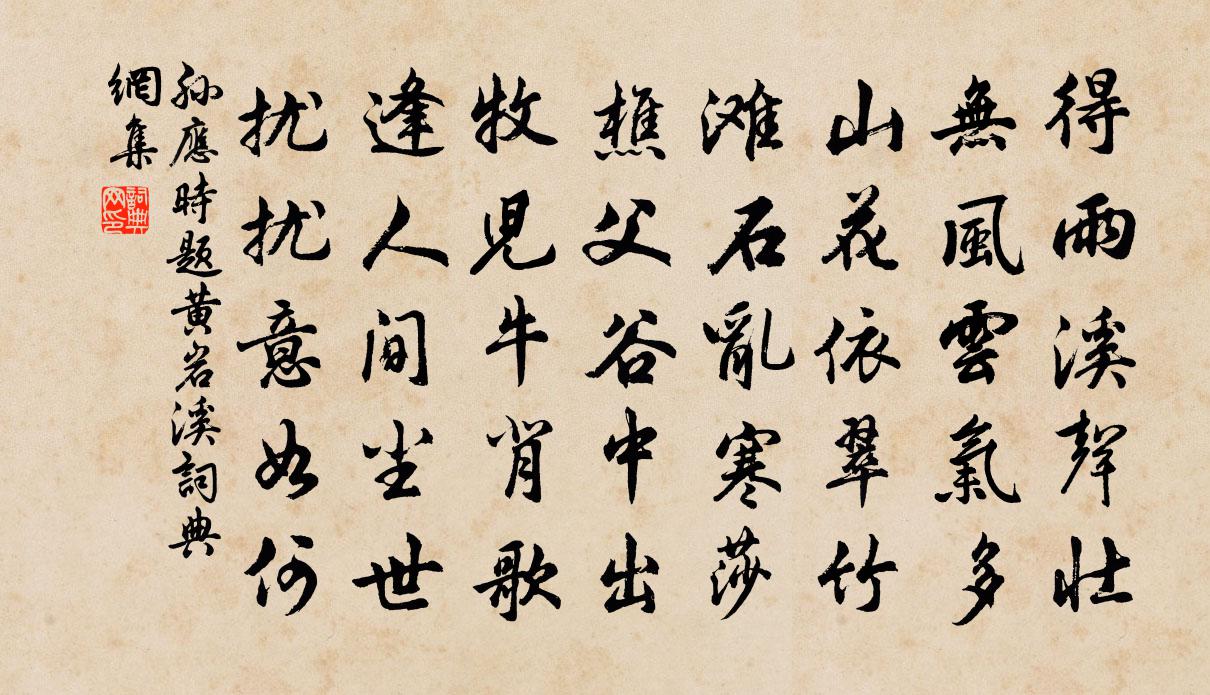 得雨溪聲壯
無風雲氣多
山花依翠竹
滩石亂寒莎
樵父谷中出
牧児牛背歌
逢人间尘世
扰扰意如何
孙應時题黄岩溪詞典
網集
詞典網印